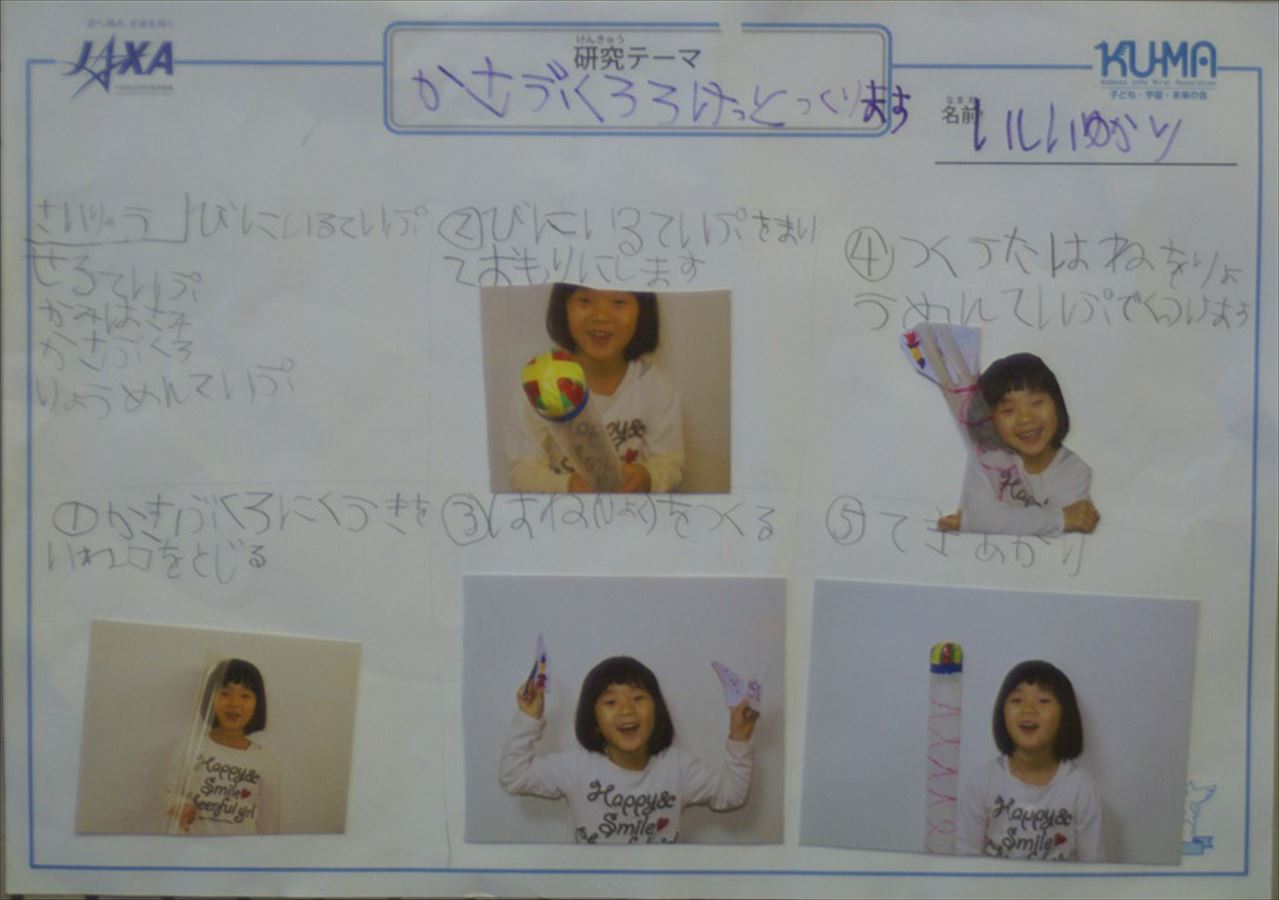 JAXA
けんきゅう
研究テーマ
かさぶくろろけっとつくります
KU-MA
子ども・宇宙・未来の会
なまえ
名前
いしいゆかり
ざいりょう
びにいるていぷ
せろていぷ
かみはさみ
かさぶくろ
りょうめんていぷ
①かさぶくろにくうきを
いれ口をとじる
②びにいるていぷをまい
ておもりにします
③はね(りょう)をつくる
④つくったはねをりょ
うめんていぷでくっつけます
⑤できあがり
Happy&
Smile
Cheerful girl
Happy&
Smile
Happy&
Smile